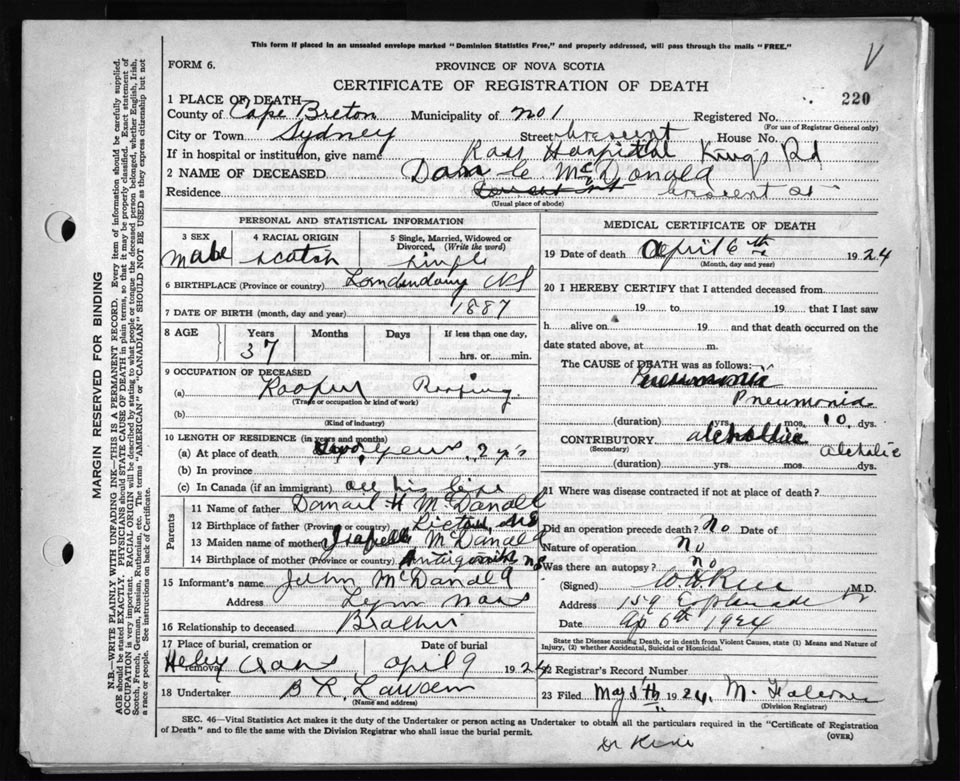 This form if placed in an unsealed envelope marked "Dominion Statistics Free," and properly addressed, will pass through the mails "FREE."
V
FORM 6.
PROVINCE OF NOVA SCOTIA
CERTIFICATE OF REGISTRATION OF DEATH
220
1 PLACE OF DEATH
County of Cape Breton Municipality of No 1 Registered No.
(For use of Registrar General only)
City or Town Sydney Street Crescent House No.
If in hospital or institution, give name Ross Hospital Kings Rd
2 NAME OF DECEASED Dan C. McDonald
Residence Crescent St
(Usual place of abode)
PERSONAL AND STATISTICAL INFORMATION
3 SEX
Male
4 RACIAL ORIGIN
Scotch
5 Single, Married, Widowed or Divorced, (Write the word)
Single
6 BIRTHPLACE (Province or country) NS
7 DATE OF BIRTH (month, day and year) 1887
8 AGE Years Months Days If less than one day,
37 hrs. or min.
9 OCCUPATION OF DECEASED
(a) Roofer Roofing
(Trade or occupation or kind of work)
(b)
(Kind of industry)
10 LENGTH OF RESIDENCE (in years and months)
(a) At place of death two years, 2 yrs
(b) In province
(c) In Canada (if an immigrant) all his life
Parents
11 Name of father H McDonald
12 Birthplace of father (Province or country) Pictou, NS
13 Maiden name of mother Isabelle McDonald
14 Birthplace of mother (Province or country) Antigonish NS
15 Informant's name John McDonald
Address Lynn Mass
16 Relationship to deceased Brother
17 Place of burial, cremation or removal Date of burial
April 9 1924
18 Undertaker
(Name and address)
MEDICAL CERTIFICATE OF DEATH
19 Date of death April 6th 1924
(Month, day and year)
20 I HEREBY CERTIFY that I attended deceased from
19 to 19 that I last saw
h alive on 19 and that death occurred on
date stated above, at m.
The CAUSE OF DEATH was as follows:
Pneumonia
Pneumonia
(duration) yrs. mos. 10 dys.
CONTRIBUTORY alcholic alcholic
(Secondary)
(duration) yrs. mos. dys.
21 Where was disease contracted if not at place of death?
Did an operation precede death? No Date of
Nature of operation No
Was there an autopsy? No
(Signed) M.D.
Address 159 Esplanade
Date Ap 6th 1924
State the Disease causing Death, or in death from Violent Causes, state (1) Means and Nature of Injury, (2) whether Accidental, Suicidal or Homicidal.
22 Registrar's Record Number
23 Filed May 5th 1924. M.
(Division Registrar)
SEC. 46—Vital Statistics Act makes it the duty of the Undertaker or person acting as Undertaker to obtain all the particulars required in the "Certificate of Registration
of Death" and to file the same with the Division Registrar who shall issue the burial permit.
(OVER)
Dr
MARGIN RESERVED FOR BINDING
N.B.—WRITE PLAINLY WITH UNFADING INK—THIS IS A PERMANENT RECORD. Every item of information should be carefully supplied.
AGE should be stated EXACTLY. PHYSICIANS should STATE CAUSE OF DEATH in plain terms, so that it may be properly classified. Exact statement of
OCCUPATION is very important. RACIAL ORIGIN will be described by stating to what people or tongue the deceased person belonged, whether English, Irish,
Scotch, French, German, Russian, Ruthenian, etc. The terms "AMERICAN" or "CANADIAN" SHOULD NOT BE USED as they express citizenship but not
a race or people. See instructions on back of Certificate.